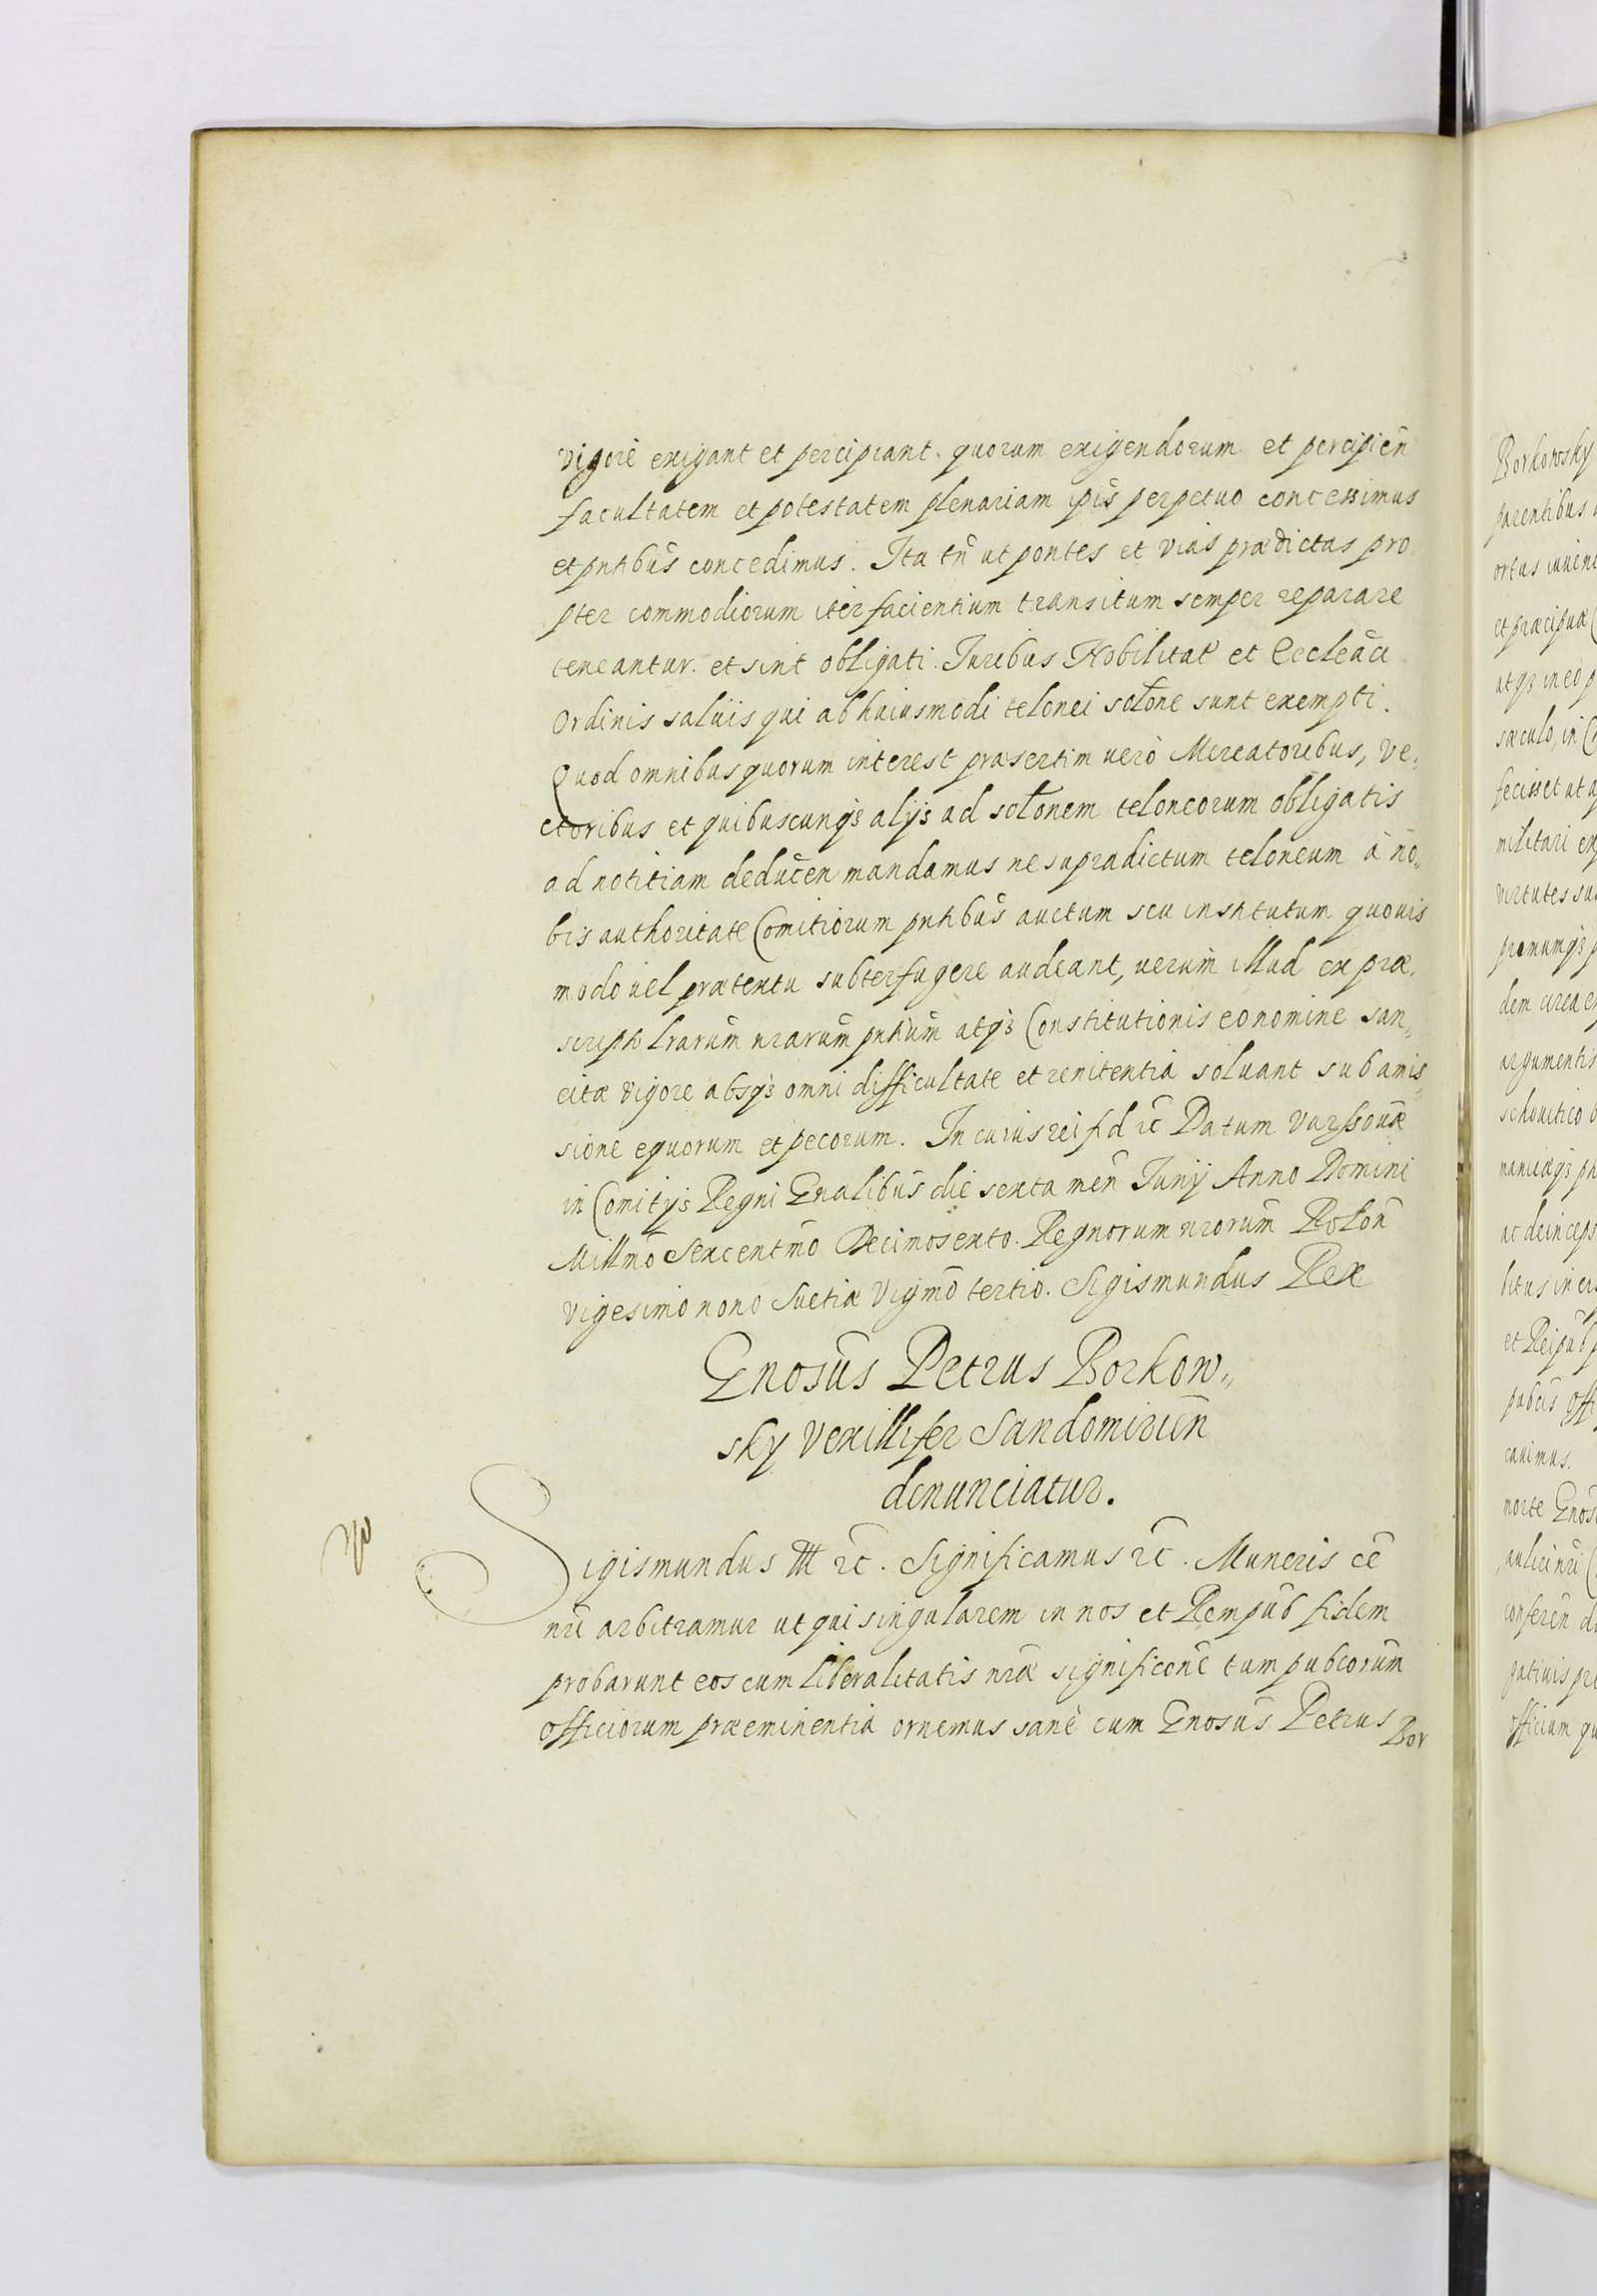 vigore exigant et percipiant. quorum exigendorum et percipien̄
facultatem et potestatem plenariam ip̄is perpetuo concessimus
et pn̄tibūs concedimus. Ita tn̄ ut pontes et vias prædictas pro
pter commodiorum iter facientium transitum semper reparare
teneantur. et sint obligati. Juribus Nobilitat̄ et Eccleāci
Ordinis salvis qui ab huiusmodi telonei solōne sunt exempti.
Quod omnibus quorum interest præsertim verò Mercatoribus, ve,
ctoribus et quibuscunqȝ alijs ad solōnem teloneorum obligatis
ad notitiam deducēn mandamus ne supradictum teloneum à no„
bis authoritate Comitiorum pn̄tibūs auctum seu institutum quovis
modo vel prætextu subterfugere audeant, verùm illud ex præ,
scripto lrarūm nrarūm pn̄tiūm atqȝ Constitutionis eo nomine san„
citæ vigore absqȝ omni difficultate et renitentia solvant sub amis„
sione equorum et pecorum. In cuius rei fid ec̄ Datum Varssoviæ
in Comitijs Regni Gn̄alibūs die sexta men̄ Junij Anno Domini
Millm̄o Sexcentm̄o Decimosexto. Regnorum nrorūm Polon̄
vigesimo nono Suetiæ Vigm̄o tertio. Sigismundus Rex
Gn̄osūs Petrus Borkow„
sky Vexillifer Sandomirien̄
denunciatur.
Sigismundus III ec̄. Significamus ec̄. Muneris eē
nr̄i arbitramur ut qui singularem in nos et Rempūb fidem
probarunt eos cum liberalitatis nr̄æ significōne tum pubcorūm
officiorum præeminentia ornemus sanè cum Gn̄osūs Petrus
Bor
Borkowsky
parentibus
ortus
et præcipuæ
atqȝ in eo
sæculo, in
fecisset ut
militari
virtutes
dem circa
argumentis
ac deinceps
et Reipūb
cavimus.
morte Gn̄os
conferen̄
officium